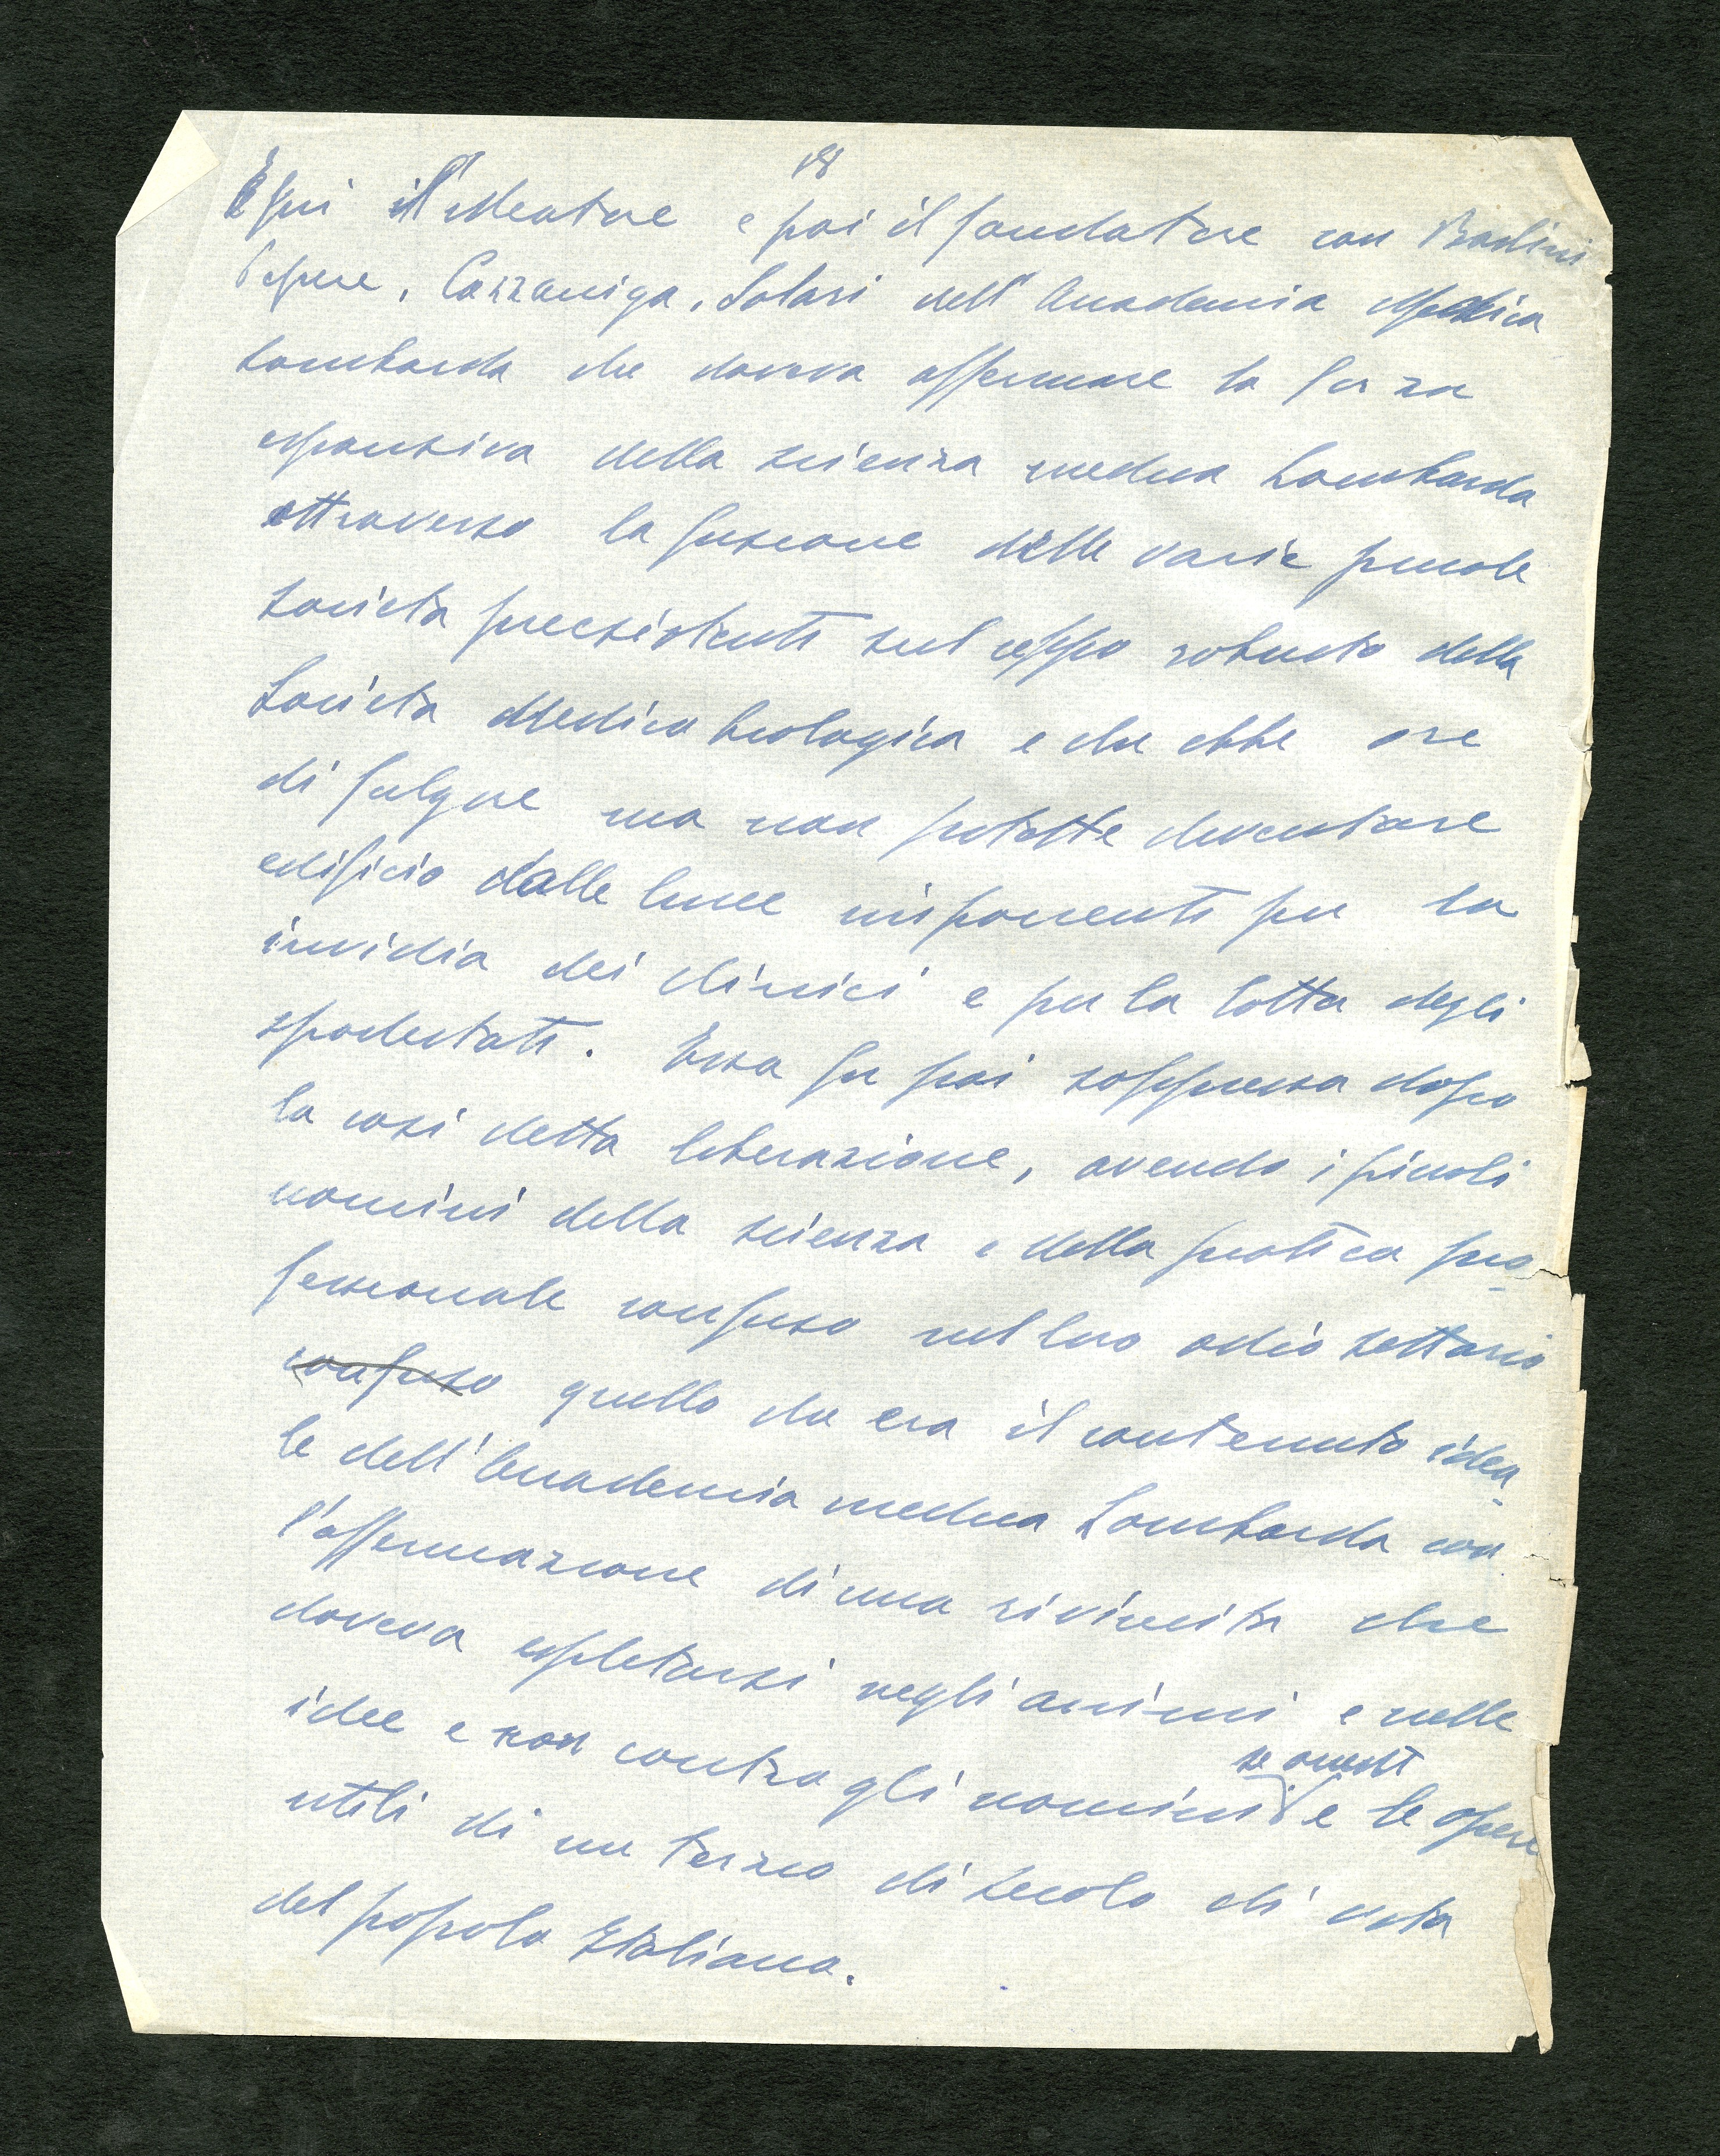 18
E fui il Mentore e poi il fondatore con Baslini
Pepere, Cazzaniga, Solari dell'Accademia Medica
Lombarda che doveva affermare la forza
espansiva della scienza medica Lombarda
attraverso la fusione delle varie piccole
società preesistenti sul ceppo robusto della
Società Medica biologica e che ebbe ore
di fulgore ma non potette diventare
edificio dalle linee imponenti per la
invidia dei clinici e per la lotta degli
spodestati. Essa fu poi soppressa dopo
la così detta liberazione, avendo i piccoli
uomini della scienza e della pratica pro-
fessionale confuso nel loro odio settario
confuso quello che era il contenuto idea-
le dell'Accademia medica Lombarda con
l'affermazione di una rivincita che
doveva espletarsi negli animi e nelle
idee e non contro gli uomini se onesti e le opere
utili di un terzo di secolo di vita
del popolo Italiano.